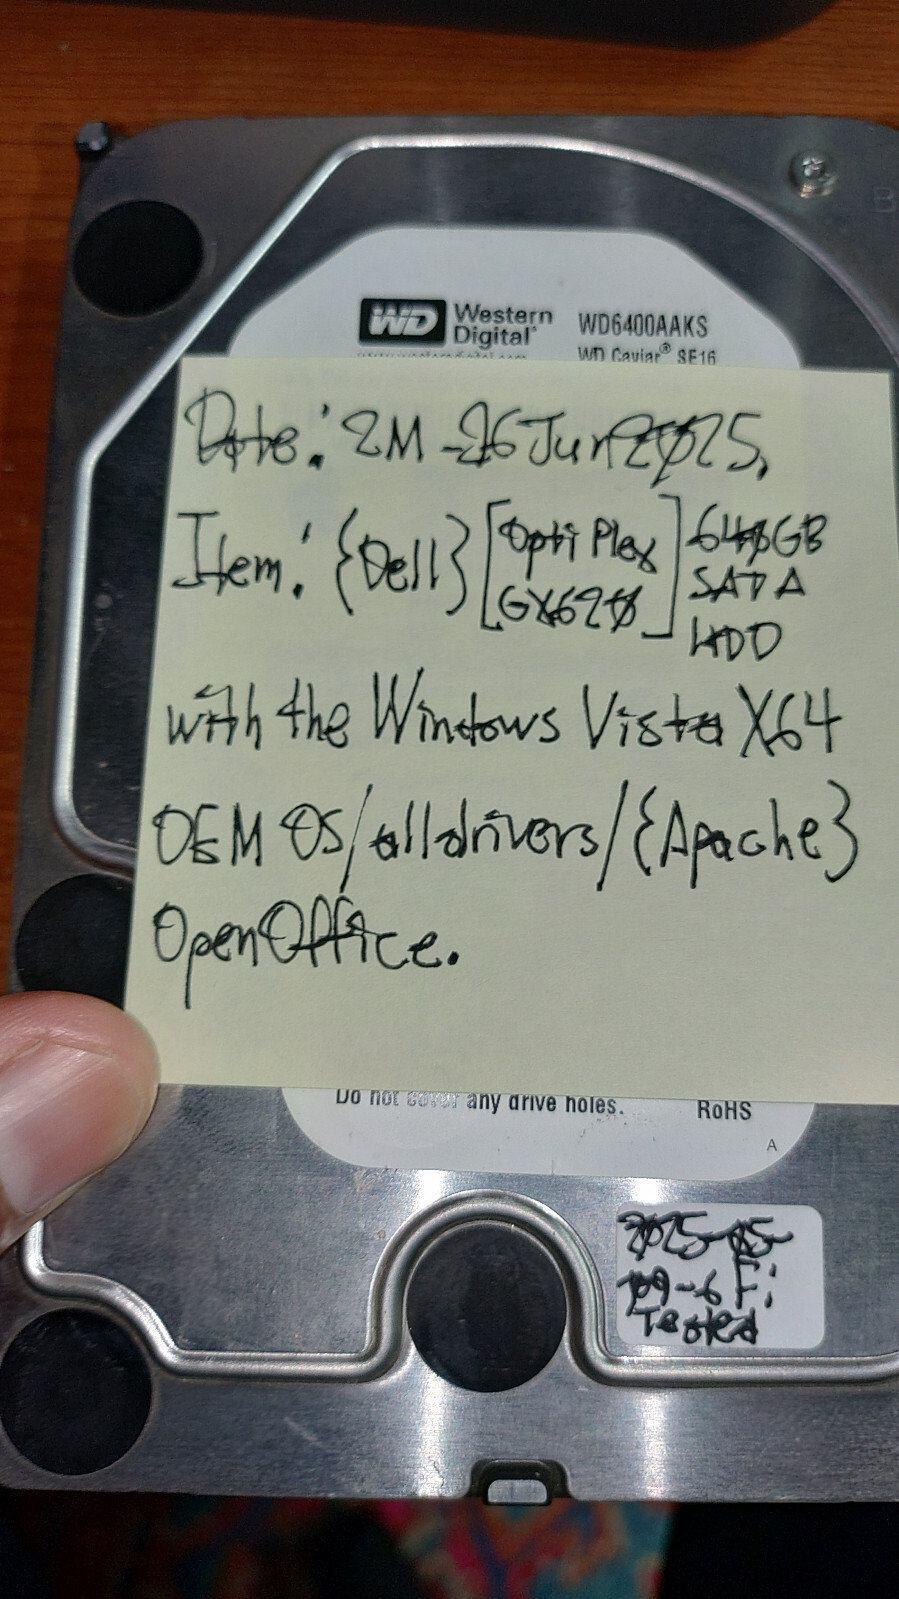 WD Western Digital®
WD6400AAKS
WD Caviar® SE16
Date: 2M-26Jun2025,
Item: {Dell} [OptiPlex GX620] 640GB SATA HDD
with the Windows Vista X64
OEM OS/all drivers/{Apache}
OpenOffice.
Do not cover any drive holes.
RoHS
A
2025-05-
09-6 F:
Tested